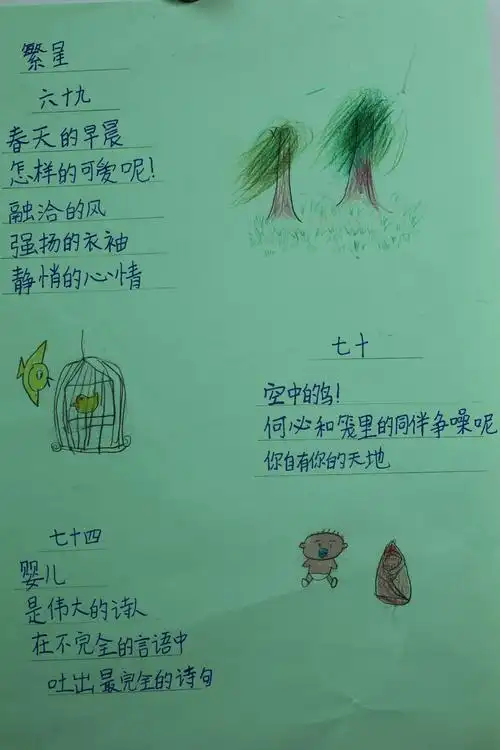 繁星
六十九
春天的早晨
怎样的可爱呢!
融洽的风
强扬的衣袖
静悄的心情
七十
空中的鸟!
何必和笼里的同伴争噪呢
你自有你的天地
七十四
婴儿
是伟大的诗人
在不完全的言语中
吐出最完全的诗句